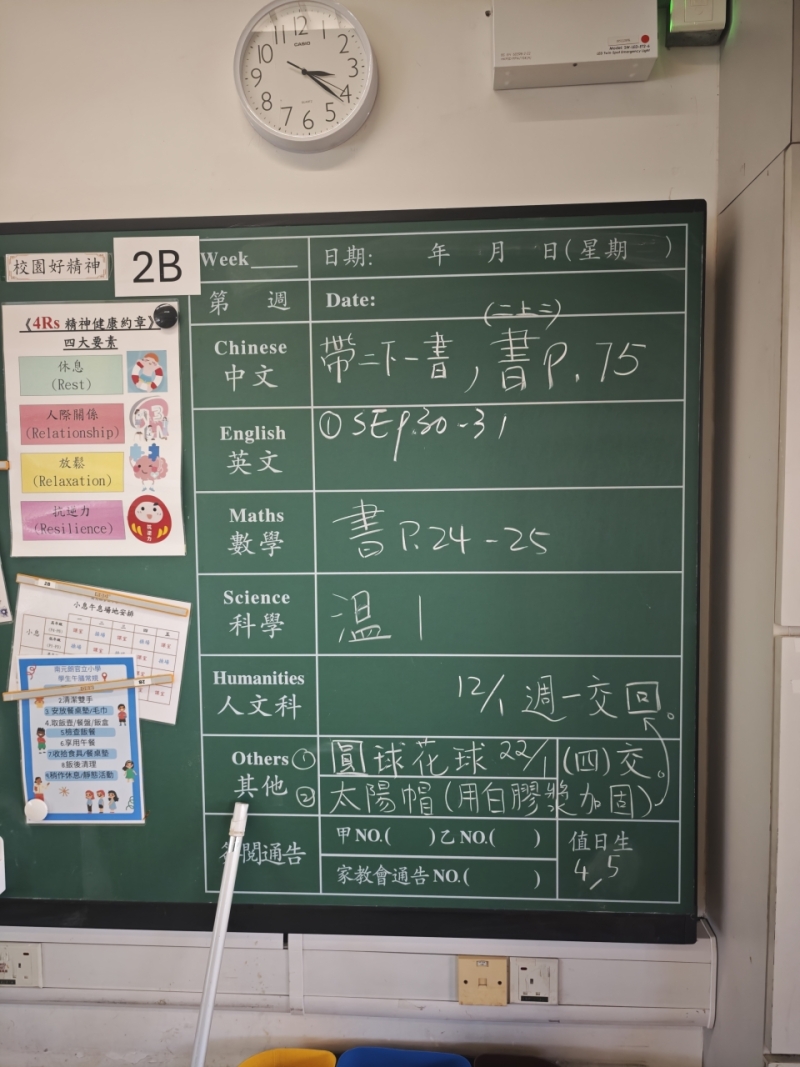 CASIO
校園好精神
2B
Week____ 日期: 年 月 日(星期 )
第 週 Date:
(二上二)
Chinese 中文 帶二下一書, 書P.75
English 英文 ① SE p.30-31
Maths 數學 書P.24-25
Science 科學 溫1
Humanities 人文科 12/1 週一交回。
Others 其他 ① 圓球花球 22/1 (四)交。
② 太陽帽(用白膠漿加固)
閱通告 甲NO.( )乙NO.( )
家教會通告NO.( )
值日生
4,5
《4Rs 精神健康約章》
四大要素
休息
(Rest)
人際關係
(Relationship)
放鬆
(Relaxation)
抗逆力
(Resilience)
小息午息場地安排
小息
一 二 三 四 五
學生午膳常規
2清潔雙手
3.安放餐桌墊/毛巾
4.取飯壺/餐盤/飯盒
5檢查飯餐
6.享用午餐
7收拾食具/餐桌墊
8飯後清理
9稍作休息/靜態活動